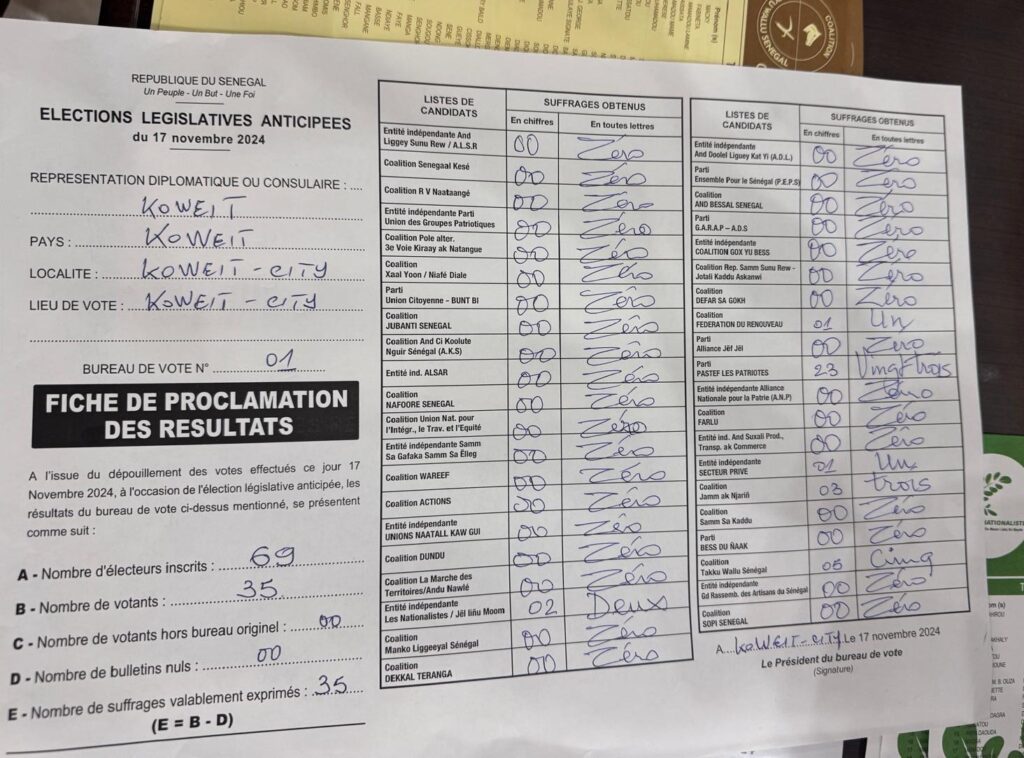 REPUBLIQUE DU SENEGAL
Un Peuple - Un But - Une Foi
ELECTIONS LEGISLATIVES ANTICIPEES
du 17 novembre 2024
REPRESENTATION DIPLOMATIQUE OU CONSULAIRE :
KOWEIT
PAYS : KOWEIT
LOCALITE : KOWEIT - CITY
LIEU DE VOTE : KOWEIT - CITY
BUREAU DE VOTE N° 01
FICHE DE PROCLAMATION
DES RESULTATS
A l'issue du dépouillement des votes effectués ce jour 17
Novembre 2024, à l'occasion de l'élection législative anticipée, les
résultats du bureau de vote ci-dessus mentionné, se présentent
comme suit :
A - Nombre d'électeurs inscrits : 69
B - Nombre de votants : 35
C - Nombre de votants hors bureau originel : 00
D - Nombre de bulletins nuls : 00
E - Nombre de suffrages valablement exprimés : 35
(E = B - D)
LISTES DE
CANDIDATS
SUFFRAGES OBTENUS
En chiffres En toutes lettres
Entité indépendante And
Liggey Sunu Rew / A.L.S.R 00 Zéro
Coalition Senegaal Kesé 00 Zéro
Coalition R V Naataangé 00 Zéro
Entité indépendante Parti
Union des Groupes Patriotiques 00 Zéro
Coalition Pole alter.
3e Voie Kiraay ak Natangue 00 Zéro
Coalition
Xaal Yoon / Niafé Diale 00 Zéro
Parti
Union Citoyenne - BUNT BI 00 Zéro
Coalition
JUBANTI SENEGAL 00 Zéro
Coalition And Ci Koolute
Nguir Sénégal (A.K.S) 00 Zéro
Entité ind. ALSAR 00 Zéro
Coalition
NAFOORE SENEGAL 00 Zéro
Coalition Union Nat. pour
l'Intégr., le Trav. et l'Equité 00 Zéro
Entité indépendante Samm
Sa Gafaka Samm Sa Élieg 00 Zéro
Coalition WAREEF 00 Zéro
Coalition ACTIONS 00 Zéro
Entité indépendante
UNIONS NAATALL KAW GUI 00 Zéro
Coalition DUNDU 00 Zéro
Coalition La Marche des
Territoires/Andu Nawlé 00 Zéro
Entité indépendante
Les Nationalistes / Jël liñu Moom 02 Deux
Coalition
Manko Liggeeyal Sénégal 00 Zéro
Coalition
DEKKAL TERANGA 00 Zéro
LISTES DE
CANDIDATS
SUFFRAGES OBTENUS
En chiffres En toutes lettres
Entité indépendante
And Doolel Liguey Kat Yi (A.D.L.) 00 Zéro
Parti
Ensemble Pour le Sénégal (P.E.P.S) 00 Zéro
Coalition
AND BESSAL SENEGAL 00 Zéro
Parti
G.A.R.A.P - A.D.S 00 Zéro
Entité indépendante
COALITION GOX YU BESS 00 Zéro
Coalition Rep. Samm Sunu Rew -
Jotali Kaddu Askanwi 00 Zéro
Coalition
DEFAR SA GOKH 00 Zéro
Coalition
FEDERATION DU RENOUVEAU 01 Un
Parti
Alliance Jëf Jël 00 Zéro
Parti
PASTEF LES PATRIOTES 23 Vingt trois
Entité indépendante Alliance
Nationale pour la Patrie (A.N.P) 00 Zéro
Coalition
FARLU 00 Zéro
Entité ind. And Suxali Prod.,
Transp. ak Commerce 00 Zéro
Entité indépendante
SECTEUR PRIVE 01 Un
Coalition
Jamm ak Njariñ 03 trois
Coalition
Samm Sa Kaddu 00 Zéro
Parti
BESS DU ÑAAK 00 Zéro
Coalition
Takku Wallu Sénégal 05 Cinq
Entité indépendante
Gd Rassemb. des Artisans du Sénégal 00 Zéro
Coalition
SOPI SENEGAL 00 Zéro
A KOWEIT-CITY Le 17 novembre 2024
Le Président du bureau de vote
(Signature)
COALITION
Prénom (s)